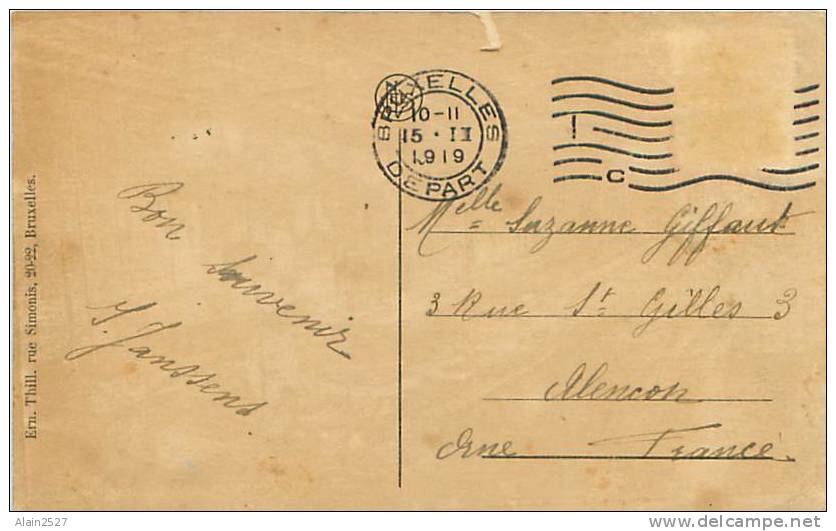 BRUXELLES
10-11
15 · II
1919
DEPART
C
Bon
souvenir
J. Janssens.
Melle Suzanne Giffaut
3 Rue St Gilles 3
Alencon
Orne France.
Ern. Thill. rue Simonis, 20-22, Bruxelles.
Alain2527
www.delcampe.net